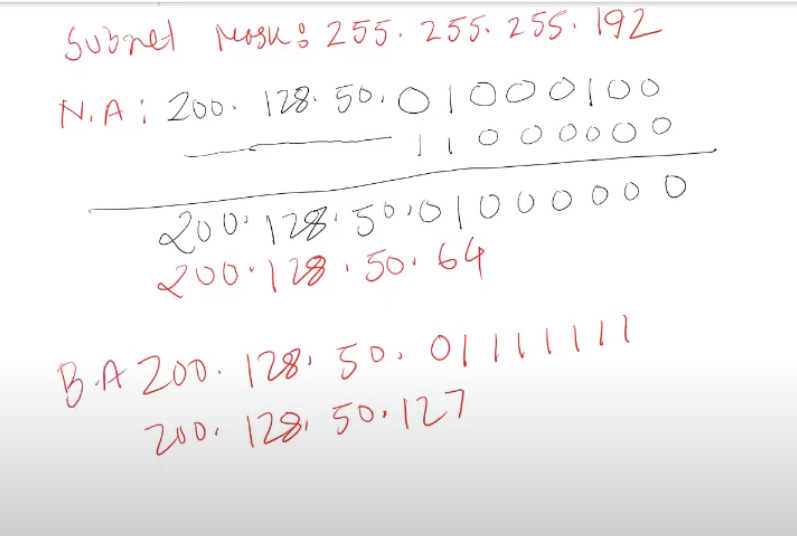 Subnet Mask: 255. 255. 255. 192
N.A: 200. 128. 50. 01000100
11000000
200. 128. 50. 01000000
200. 128. 50. 64
B.A 200. 128. 50. 01111111
200. 128. 50. 127